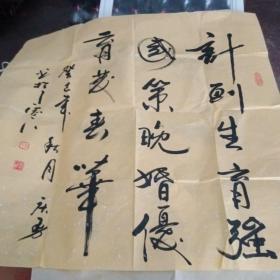 計劃生育強
國策晚婚優
育茂春華
癸巳年秋月